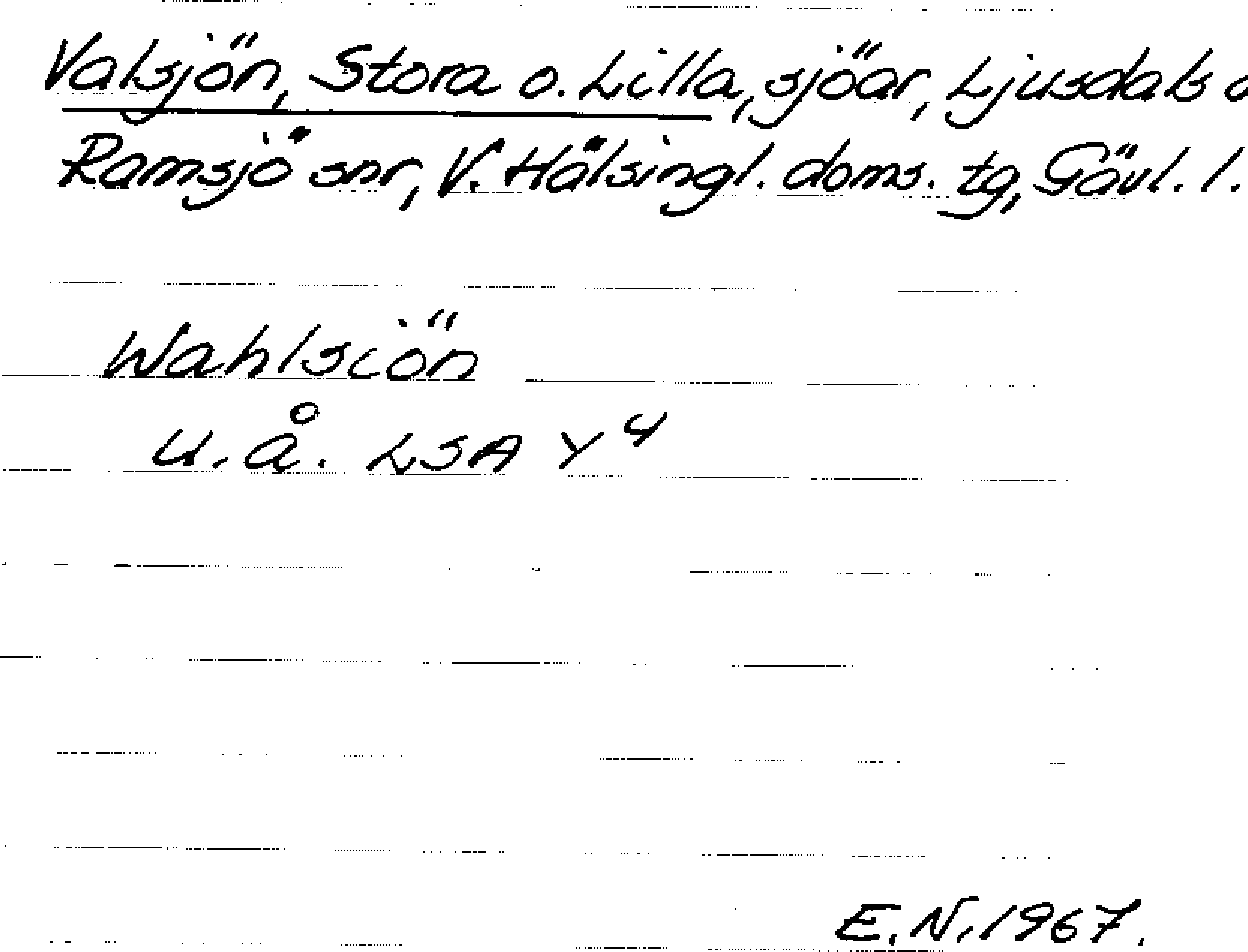 Valsjön, Stora o. Lilla, sjöar, Ljusdals o
Ramsjö snr, V. Hälsingl. doms. tg, Gävl. l.
Wahlsiön
u. å. LSA Y 4
E. N. 1967.